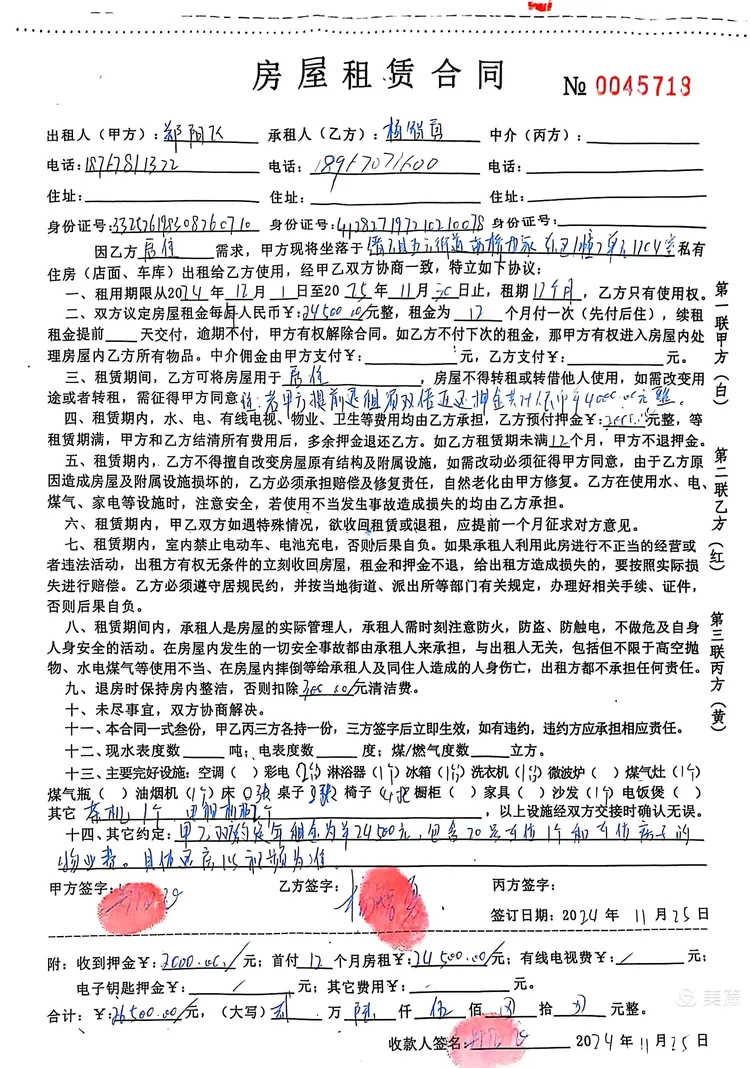 房屋租赁合同 № 0045713
出租人（甲方）：郑阳飞 承租人（乙方）：杨智勇 中介（丙方）：
电话：18767811322 电话：18967071600 电话：
住址： 住址： 住址：
身份证号：332526198308260710 身份证号：412827197210210078 身份证号：
因乙方 居住 需求，甲方现将坐落于 1704室 私有
住房（店面、车库）出租给乙方使用，经甲乙双方协商一致，特立如下协议：
一、租用期限从2024年12月1日至2025年11月30日止，租期12个月，乙方只有使用权。
二、双方议定房屋租金每年人民币￥：24500.00元整，租金为12个月付一次（先付后住），续租
租金提前 天交付，逾期不付，甲方有权解除合同。如乙方不付下次的租金，那甲方有权进入房屋内处
理房屋内乙方所有物品。中介佣金由甲方支付￥： 元，乙方支付￥： 元。
三、租赁期间，乙方可将房屋用于 居住 ，房屋不得转租或转借他人使用，如需改变用
途或者转租，需征得甲方同意 注：若甲方提前退租需双倍返还押金共计 4000.00元整。
四、租赁期内，水、电、有线电视、物业、卫生等费用均由乙方承担，乙方预付押金￥：2000.00元整，等
租赁期满，甲方和乙方结清所有费用后，多余押金退还乙方。如乙方租赁期未满12个月，甲方不退押金。
五、租赁期内，乙方不得擅自改变房屋原有结构及附属设施，如需改动必须征得甲方同意，由于乙方原
因造成房屋及附属设施损坏的，乙方必须承担赔偿及修复责任，自然老化由甲方修复。乙方在使用水、电、
煤气、家电等设施时，注意安全，若使用不当发生事故造成损失的均由乙方承担。
六、租赁期内，甲乙双方如遇特殊情况，欲收回租赁或退租，应提前一个月征求对方意见。
七、租赁期内，室内禁止电动车、电池充电，否则后果自负。如果承租人利用此房进行不正当的经营或
者违法活动，出租方有权无条件的立刻收回房屋，租金和押金不退，给出租方造成损失的，要按照实际损
失进行赔偿。乙方必须遵守居规民约，并按当地街道、派出所等部门有关规定，办理好相关手续、证件，
否则后果自负。
八、租赁期间内，承租人是房屋的实际管理人，承租人需时刻注意防火，防盗、防触电，不做危及自身
人身安全的活动。在房屋内发生的一切安全事故都由承租人来承担，与出租人无关，包括但不限于高空抛
物、水电煤气等使用不当、在房屋内摔倒等给承租人及同住人造成的人身伤亡，出租方都不承担任何责任。
九、退房时保持房内整洁，否则扣除300.00元清洁费。
十、未尽事宜，双方协商解决。
十一、本合同一式叁份，甲乙丙三方各持一份，三方签字后立即生效，如有违约，违约方应承担相应责任。
十二、现水表度数 吨；电表度数 度；煤/燃气度数 立方。
十三、主要完好设施：空调（ ）彩电 2台 淋浴器（1个）冰箱（1台）洗衣机（1台）微波炉（ ）煤气灶（1个）
煤气瓶（ ）油烟机（1个）床 3张 桌子 3张 椅子 4把 橱柜（ ）家具（ ）沙发（1个）电饭煲（ ）
其它 茶机1个 电视柜2个 ，以上设施经双方交接时确认无误。
十四、其它约定：甲乙双方约定年租金为￥24500元，包含70号车位1个和车位房子的
物业费。具体退房以视频为准
甲方签字： 乙方签字：杨智勇 丙方签字：
签订日期：2024年11月25日
附：收到押金￥：2000.00元；首付12个月房租￥：24500.00元；有线电视费￥：/元；
电子钥匙押金￥：/元；其它费用￥：/元。
合计：￥：26500.00元，（大写）贰万陆仟伍佰 拾 元整。
收款人签名： 2024年11月25日
第一联甲方（白） 第二联乙方（红） 第三联丙方（黄）
美篇